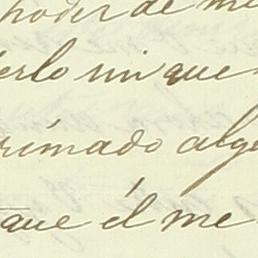 poder de me
erlo sin que
rimado alg
que él me